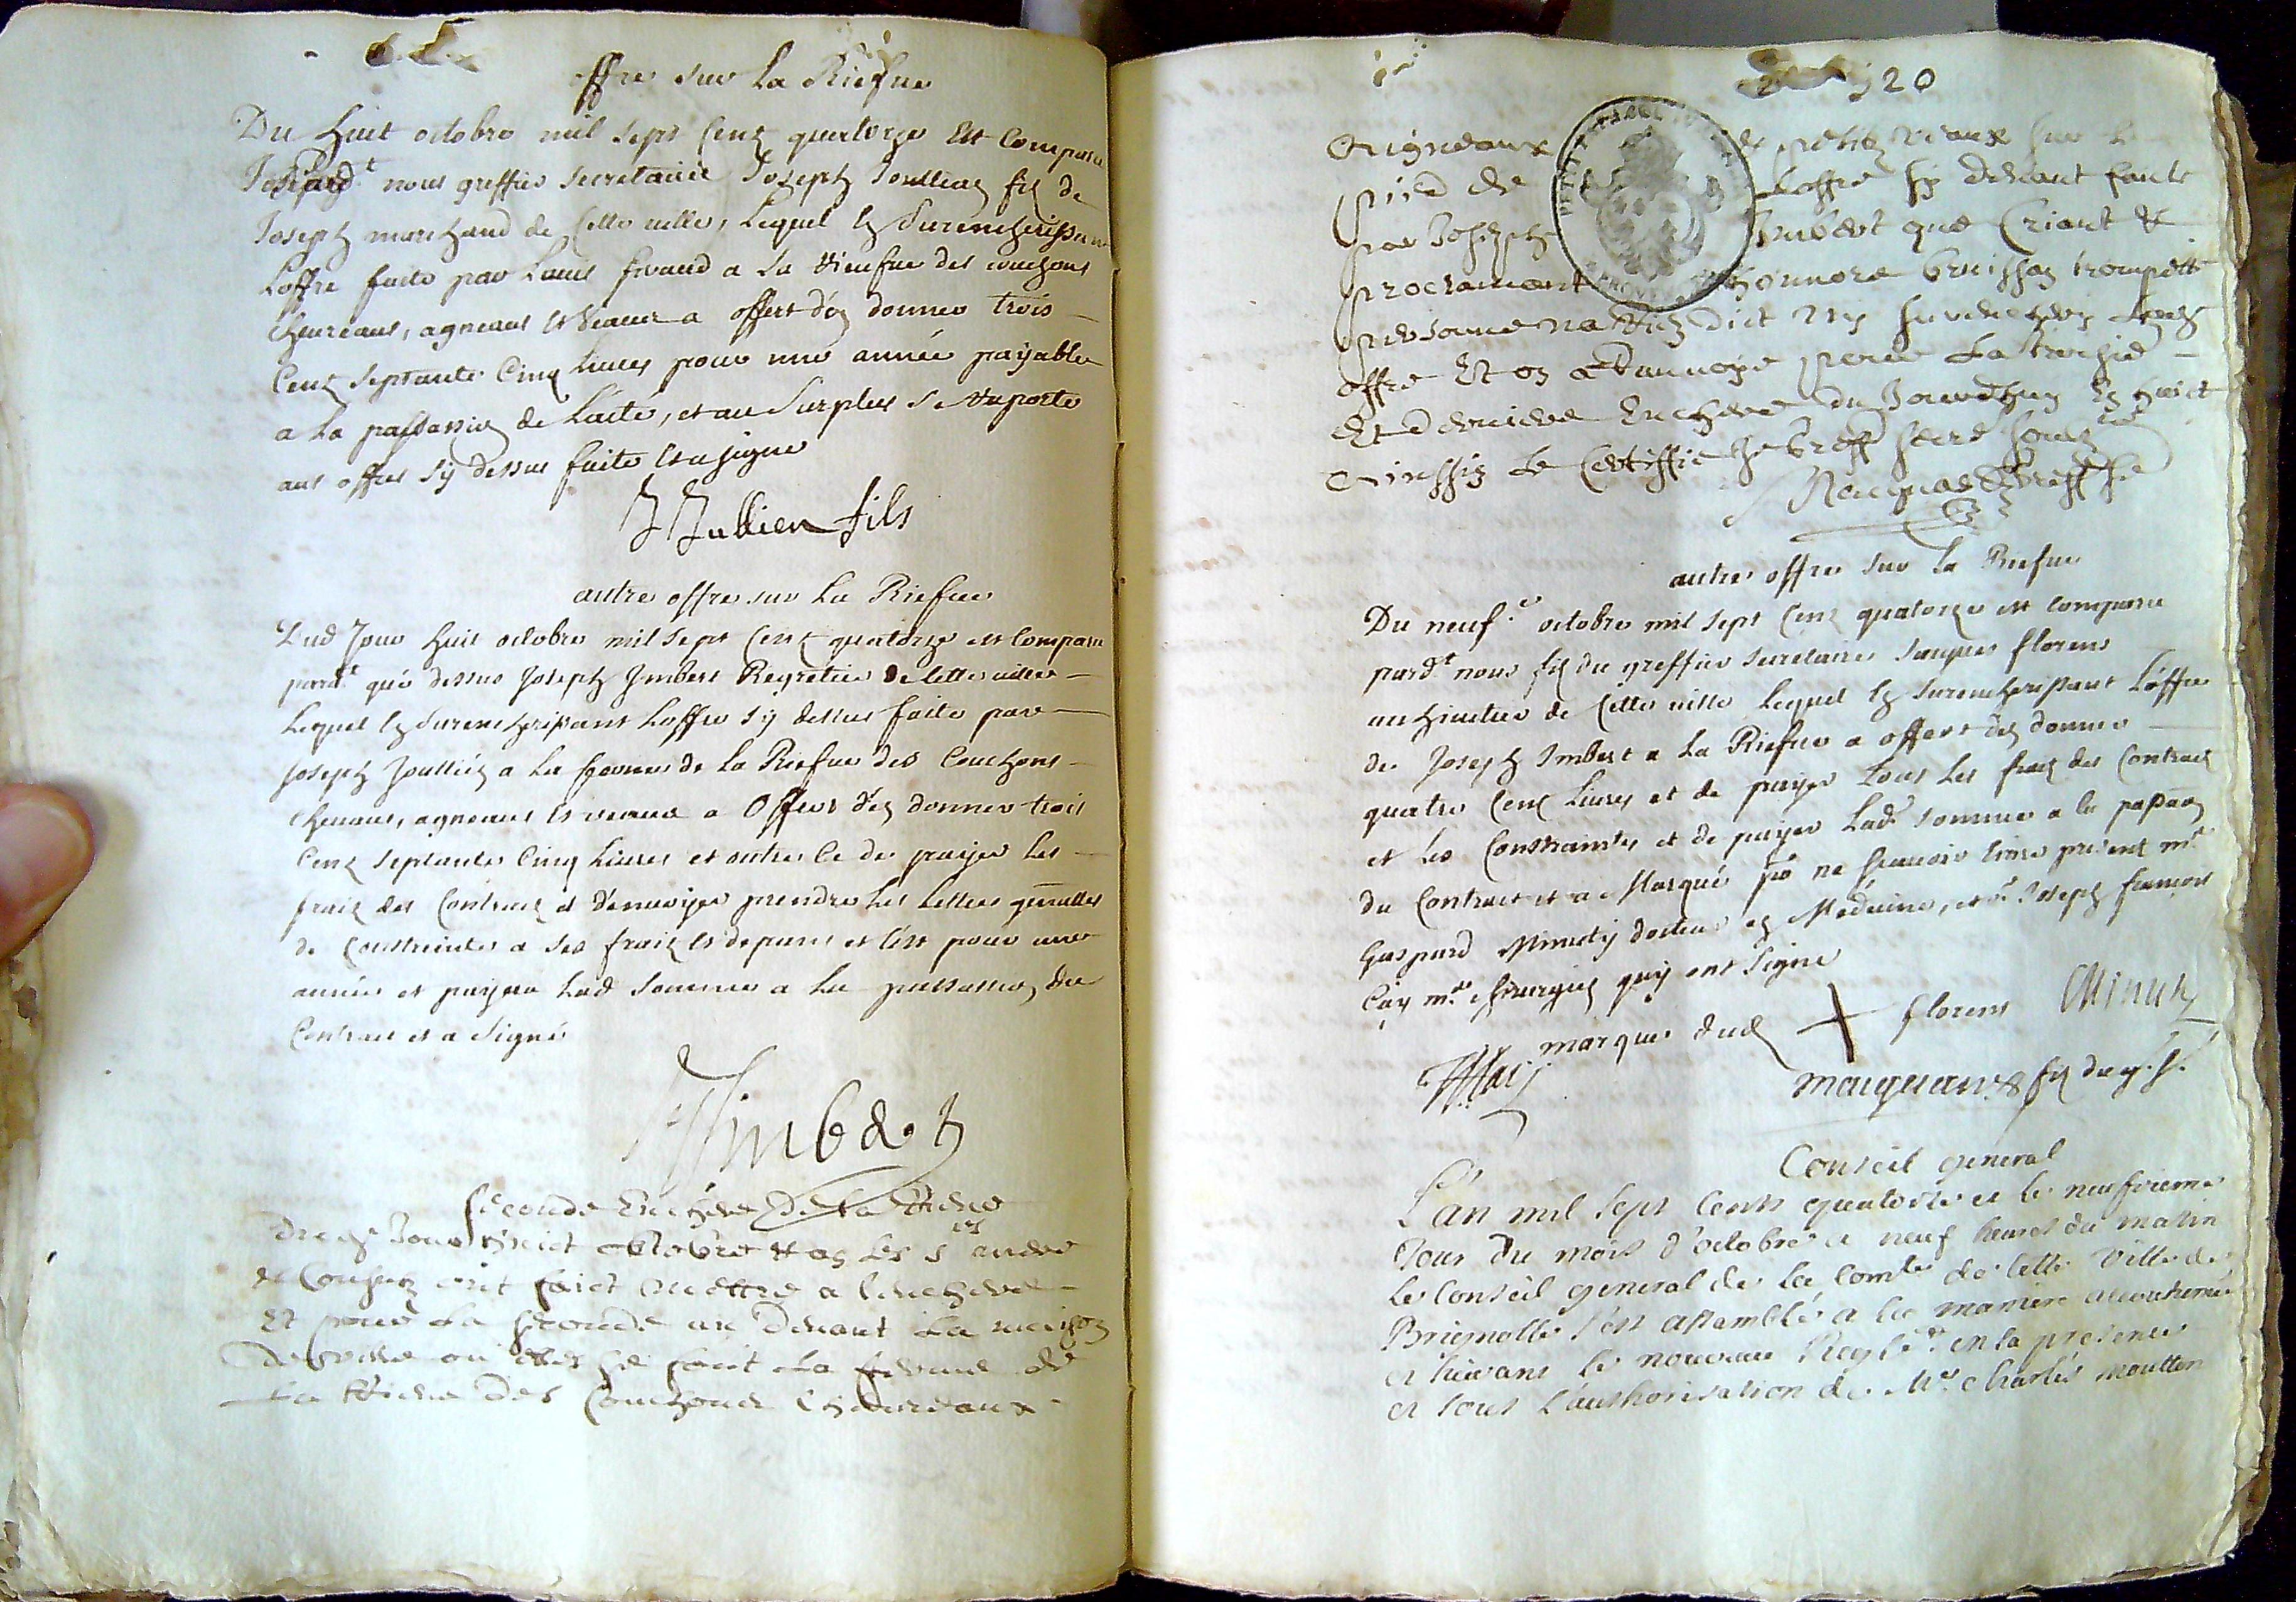 offre sur la Riefue
Du huit octobre mil sept cent quatorze Est Comparu
pard.t nous greffier secretaire Joseph Joullien fis de
Joseph marchand de cette ville, Lequel en Surencherissant
Loffre faite par Louis a la Riefue des couchons
cheureaux, agneaux et veaux a offert d'en donner trois
Cent septante Cinq liures pour une année payable
a la passation de Lacte, et au Surplus se raporte
aux offres sy dessus faite et a signe
J Jullien fils
autre offre sur la Riefue
Lud Jour huit octobre mil sept cent quatorze est comparu
pard.t que dessus Joseph Jmbert Regretier de cette ville
Lequel en Surencherissant Loffre sy dessus faite par
Joseph Joullien a la ferme de la Riefue des Couchons
cheuraux, agneaux et veaux a Offert d'en donner trois
Cent septante Cinq Liures et outre ce de payer les
fraix des Contract et d'enuoyer prendre les lettres gēnalles
de Constrainte a ses fraix et depans et c'est pour une
année et payera Lad somme a la passation du
Contract et a Signé
Jmbert
seconde Enchere de la
dud Jour huict octobre les s.rs
et Consuls ont faict mettre a lenchere
Et pour la seconde au devant la maison
de ville ou se faict la ferme de
la des Couchons Cheureaux
320
Aigneaux de petits veaux sur le
pied de Loffre sy deuant faicte
par Joseph Jmbert que Criant &
proclamant honnore trompette
personne na dict ny surenchery
offre Et on a renuoyé pour la
Et derniere Enchere du Jourdhuy En huict
Ainssin le Certiffie
autre offre sur la Riefue
Du neuf.e octobre mil sept cent quatorze est comparu
pard.t nous fis du greffier secretaire Jacques florens
de cette ville Lequel en Surencherissant Loffre
de Joseph Jmbert a la Riefue a offert d'en donner
quatre cent Liures et de payer tous les fraix des Contract
et les Constraintes et de payer Lad.e somme a la passaōn
du Contract et a Marqué po ne scauoir Ecrire present m.e
Gaspard Minuty docteur en Medecine, et s.r Joseph francois
m.e chirurgien quy ont signe
marque dud + florens Minuty
fis du g. s.
Conseil general
L'an mil sept cents quatorze et le neufvieme
Jour du mois d'octobre a neuf heures du matin
le Conseil general de la Com.te de cette Ville de
Brignolle s'est assemblé a la maniere accoutumée
et suivant le nouveau Regle.t en la presence
et sous l'authorisation de M.e Charles moutton